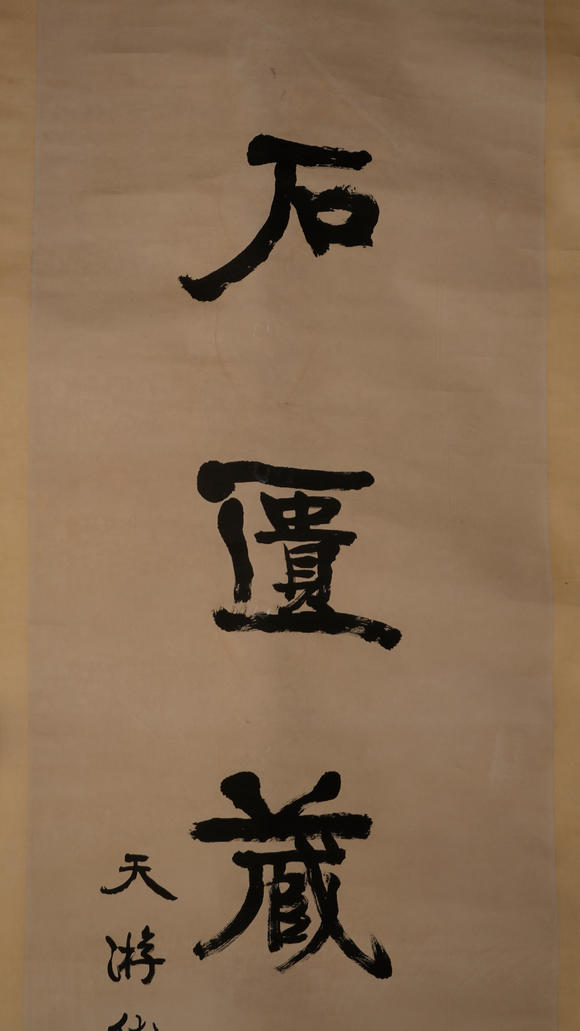 石匱藏
天游